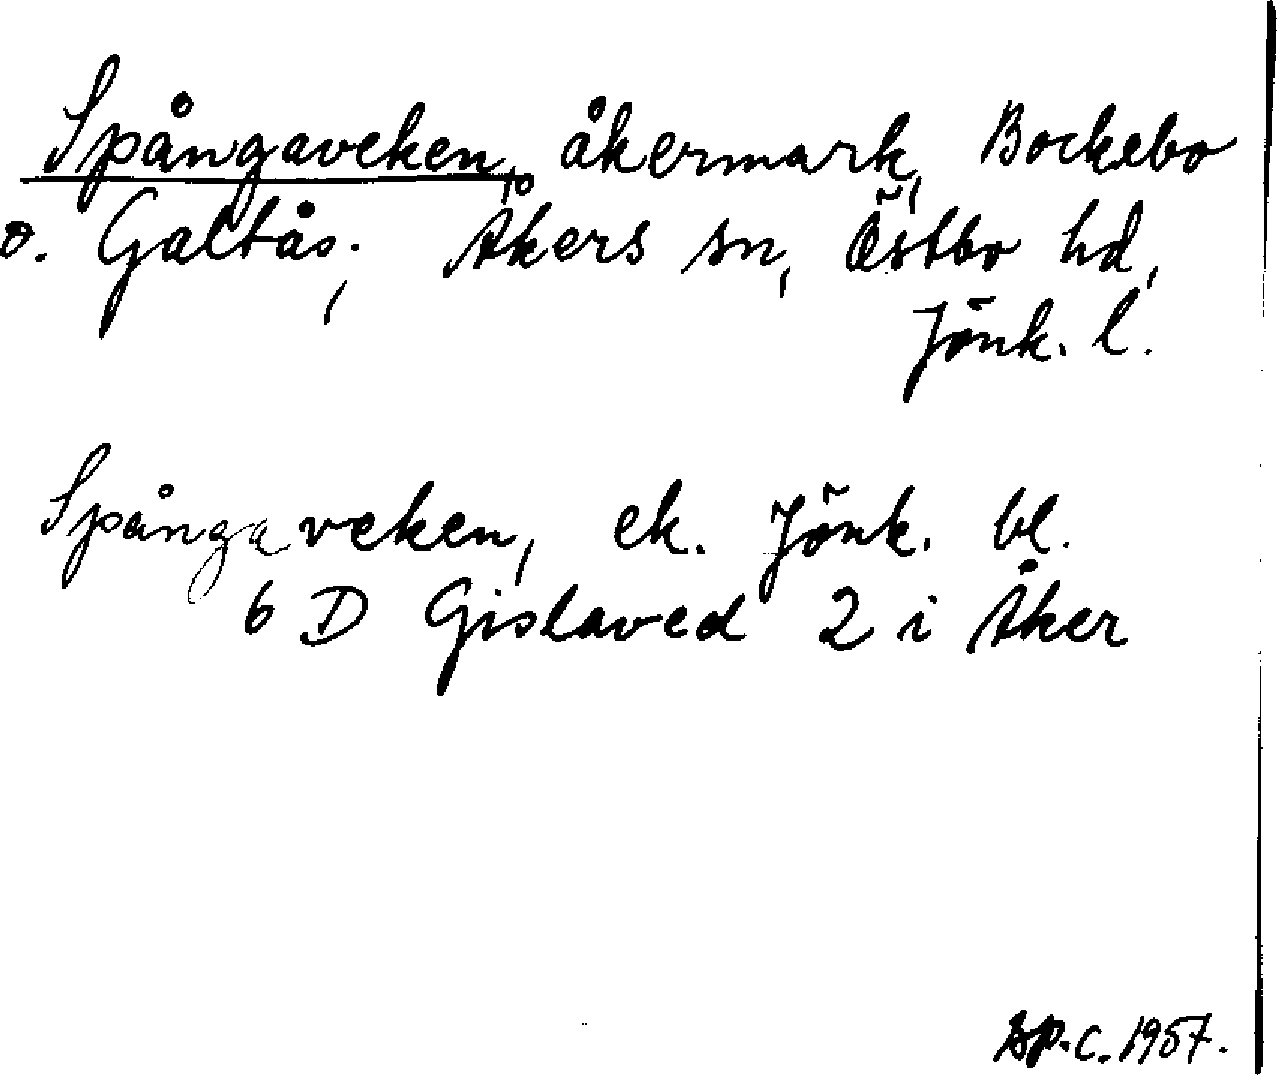 Spångaveken, åkermark, Bockebo
o. Galtås; Åkers sn, Östbo hd,
Jönk. l.
Spångaveken, ek. Jönk. bl.
6 D Gislaved 2 i Åker
C. 1957.